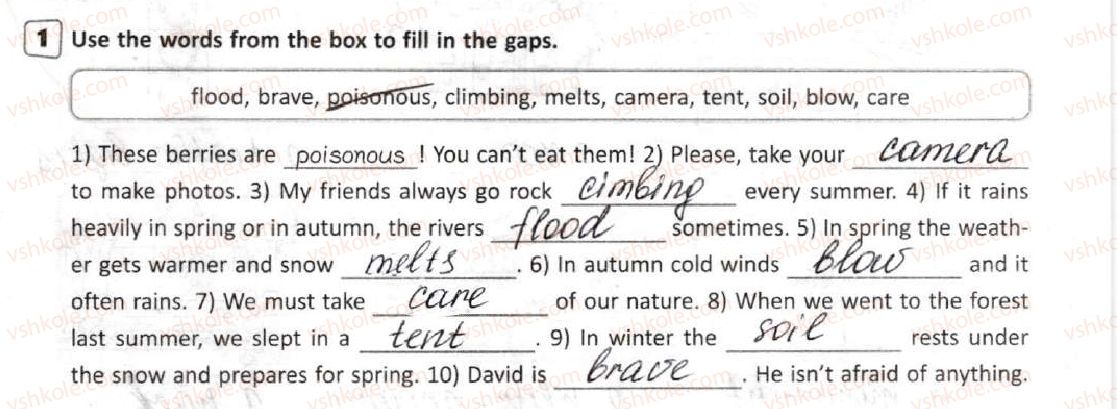 1 Use the words from the box to fill in the gaps.
flood, brave, poisonous, climbing, melts, camera, tent, soil, blow, care
1) These berries are poisonous ! You can't eat them! 2) Please, take your camera
to make photos. 3) My friends always go rock cimbing every summer. 4) If it rains
heavily in spring or in autumn, the rivers flood sometimes. 5) In spring the weath-
er gets warmer and snow melts . 6) In autumn cold winds blow and it
often rains. 7) We must take care of our nature. 8) When we went to the forest
last summer, we slept in a tent . 9) In winter the soil rests under
the snow and prepares for spring. 10) David is brave . He isn't afraid of anything.